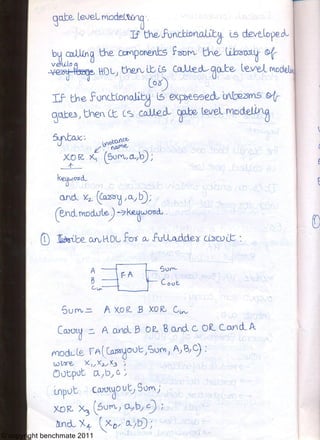 gate level modelling:
If the functionality is developed
by calling the components from the library of
verilog
HDL, then it is called gate level modelin
(or)
If the functionality is expressed inbeams of
gates, then it is called gate level modeling
Syntax:
instance
name
XOR X1 (Sum,a,b);
keyword
and X2 (Carry,a,b);
(End module) → keyword
① an HDL for a fulladder circuit:
A
B
Cin
FA
Sum
Cout
Sum = A XOR B XOR Cin
Carry = A and B OR B and C OR C and A
module FA(Carryout, Sum, A, B, C);
wire X1, X2, X3;
Output a, b, c;
input Carryout, Sum;
XOR X3 (Sum, a, b, c);
and X4 (X0, a, b);
copyright benchmate 2011